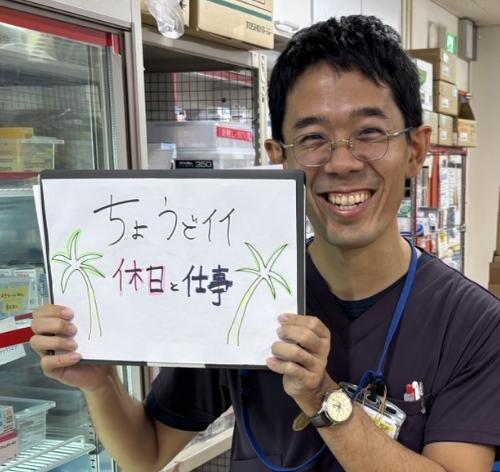 ちょうどイイ
休日と仕事
350